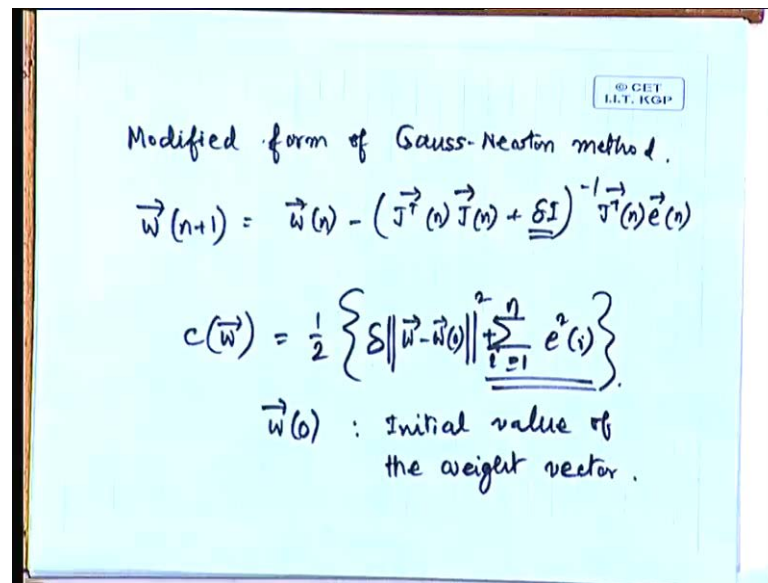 © CET
I.I.T. KGP
Modified form of Gauss-Newton method.
w⃗(n+1) = w⃗(n) - (J⃗ᵀ(n) J⃗(n) + δI)⁻¹ J⃗ᵀ(n) e⃗(n)
c(w⃗) = 1/2 { δ‖w⃗ - w⃗(0)‖² + Σ_{i=1}^{n} e²(i) }.
w⃗(0) : Initial value of
the weight vector.